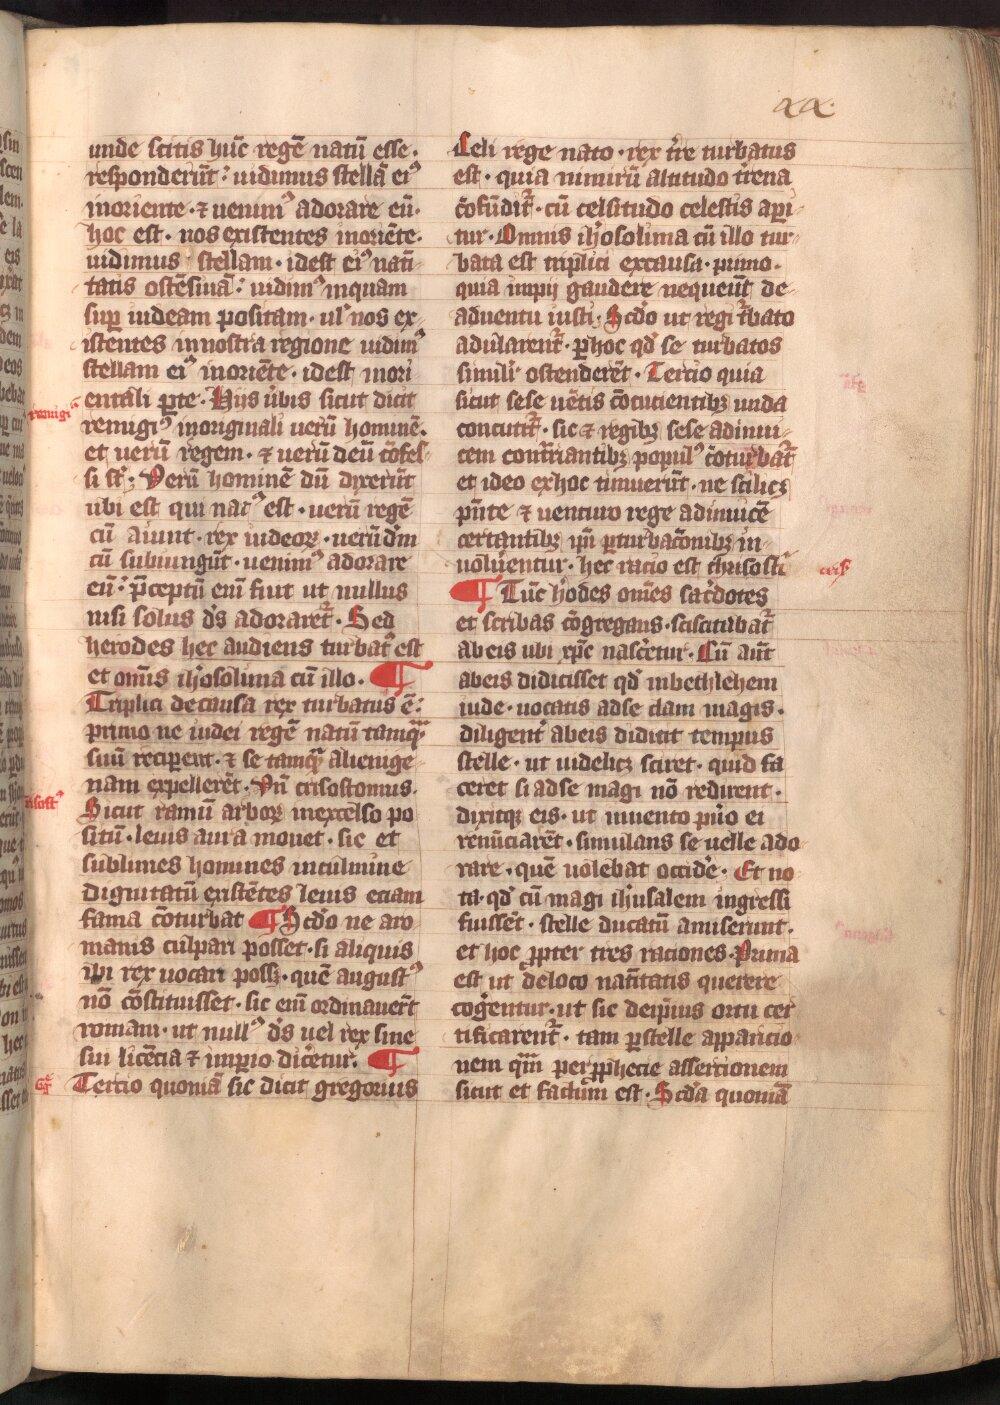 xx.
unde scitis huc̄ regē natū esse.
responderūt: uidimus stellā eiꝰ
inoriente. ⁊ uenimꝰ adorare eū.
hoc est. nos existentes inoriēte.
uidimus stellam. idest eiꝰ nati
tatis ostēsiuā: uidimꝰ inquam
suꝑ iudeam positam. ul' nos ex
istentes innostra regione uidimꝰ
stellam eiꝰ inoriēte. idest inori
entali ꝑte. Hijs ūbis sicut dicit
remigiꝰ
remigiꝰ inoriginali uerū hominē.
et uerū regem. ⁊ uerū deū cōfes
si st̄; Verū hominē dū dixerūt
ubi est qui natꝰ est. uerū regē
cū aiunt. rex iudeoꝝ. uerū dm̄
cū subiungūt. uenimꝰ adorare
eū: p̄ceptū enī fuit ut nullus
nisi solus ds̄ adoraret᷑. Sed
herodes hec audiens turbatꝰ est
et omīs ih'osolima cū illo. ¶
Triplici decausa rex turbatus ē:
primo ne iudei regē natū tamqᷓ
suū reciperent. ⁊ se tamqᷓ alienige
nam expellerēt. Vn̄ crisostomus.
Sicut ramū arboꝝ inexcelso po
sitū. leuis aura mouet. sic et
sublimes homines inculmine
dignitatū existētes leuis etiam
fama cōturbat ¶ Scd'o ne aro
manis culpari posset. si aliquis
ibi rex uocari possꝫ. quē augustꝰ
nō cōstituisset. sic enī ordinauer̄t
romani. ut nullꝰ ds̄ uel rex sine
sui licēcia ⁊ imperio dic̄etur. ¶
Tercio quoniā sic dicit gregorius
Celi rege nato. rex t're turbatus
est. quia nimirū altitudo t'rena
cōfūdit᷑. cū celsitudo celestis apı
tur. Omnis ih'osolima cū illo tur
bata est triplici excausa. primo.
quia impij gaudere nequeūt de
aduentu iusti. Scd'o ut regi t'bato
adularent᷑. ꝑhoc qd' se turbatos
simili' ostenderēt. Tercio quia
sicut sese uētis cōcucientibꝫ unda
concutit᷑. sic ⁊ regibꝫ sese adinui
cem contrariantibꝫ populꝰ cōturbat᷑
et ideo exhoc timuerūt. ne scilicꝫ
p̄nte ⁊ uenturo rege adinuicē
certantibꝫ ip̄i ꝑturbac̄onibꝫ in
uoluentur. hec racio est chrisosti
¶ Tūc h'odes omēs sac'dotes
et scribas cōgregans. sciscitabat᷑
abeis ubi xp̄c nascēetur. Cū aūt
abeis didicisset qd' inbethlehem
iude. uocatis adse clam magis.
diligent' abeis didicit tempus
stelle. ut uidelicꝫ sciret. quid fa
ceret si adse magi nō redirent.
dixitqꝫ eis. ut inuento puo ei
renūciarēt. simulans se uelle ado
rare. quē uolebat occide'. Et no
ta. qd' cū magi ih'usalem ingressi
fuissēt. stelle ducatū amiserunt.
et hoc ꝓpter tres raciones. Prima
est ut deloco natītatis querere
cogentur. ut sic deipīus ortu cer
tificarent᷑. tam ꝑstelle apparicio
nem qm̄ perꝓphecie assertionem
sicut et factum est. Scd'a quoniā